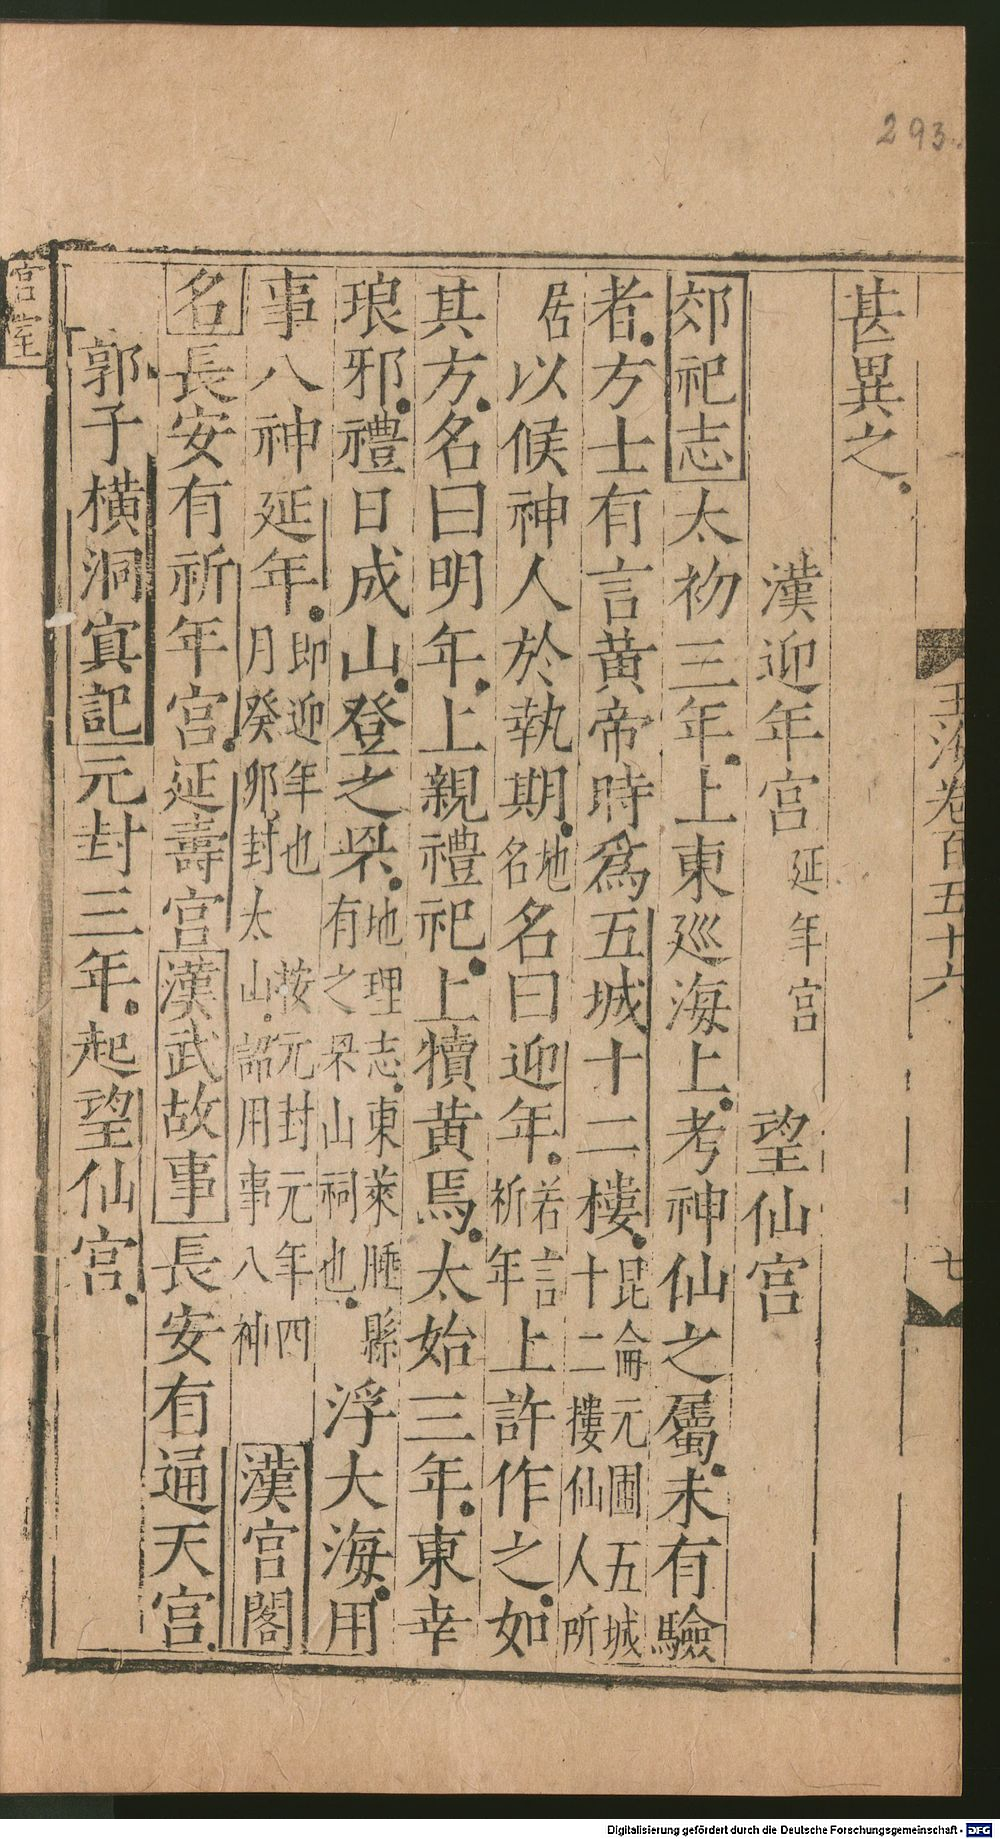 293.
玉海卷百五十六
七
甚異之
漢迎年宮 延年宮 望仙宮
郊祀志太初三年上東巡海上考神仙之屬未有驗
者方士有言黄帝時爲五城十二樓昆侖元圃五城十二樓仙人所
居以候神人於執期地名名曰迎年若言祈年上許作之如
其方名曰明年上親禮祀上犢黄焉太始三年東幸
琅邪禮日成山登之罘地理志東萊腄縣有之罘山祠也浮大海用
事八神延年即迎年也按元封元年四月癸卯封太山詔用事八神漢宮閣
名長安有祈年宮延壽宮漢武故事長安有通天宮
郭子橫洞㝠記元封三年起望仙宮
宮室
Digitalisierung gefördert durch die Deutsche Forschungsgemeinschaft - DFG